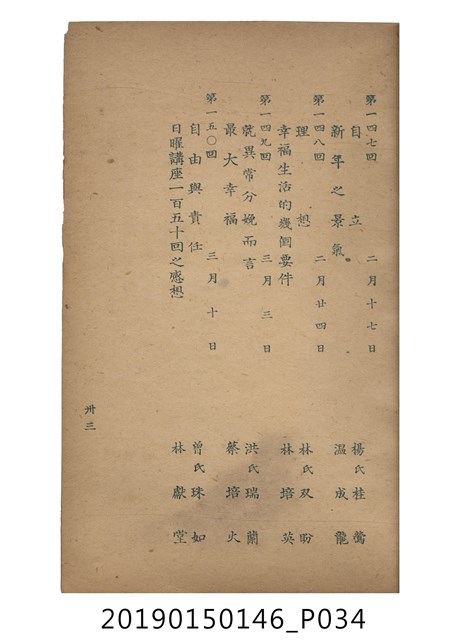 第一四七回　二月十七日
自立　楊氏桂鶯
新年之景氣　溫成龍
第一四八回　二月廿四日
理想　林氏双盼
幸福生活的幾個要件　林培英
第一四九回　三月三日
就異常分娩而言　洪氏瑞蘭
最大幸福　蔡培火
第一五〇回　三月十日
自由與責任　曾氏珠如
日曜講座一百五十回之感想　林獻堂
卅三
20190150146_P034